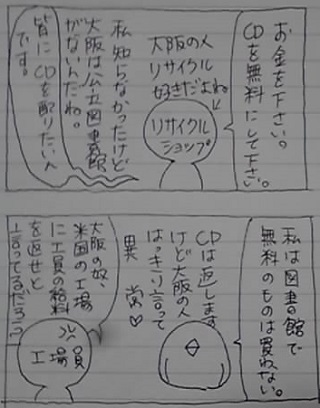 お金を下さい。
CDを無料にして下さい。
大阪の人
リサイクル
好きだよね
リサイクル
ショップ
私知らなかったけど
大阪は公立図書館
がないんだね。
皆にCDを配りたいん
です。
私は図書の館で
無料のものは買わない。
CDは返します
けど大阪の人
はっきり言って
異常♡
大阪の奴、
米国の工場
に工員の給料
を返せと
言ってるだろう
工場員